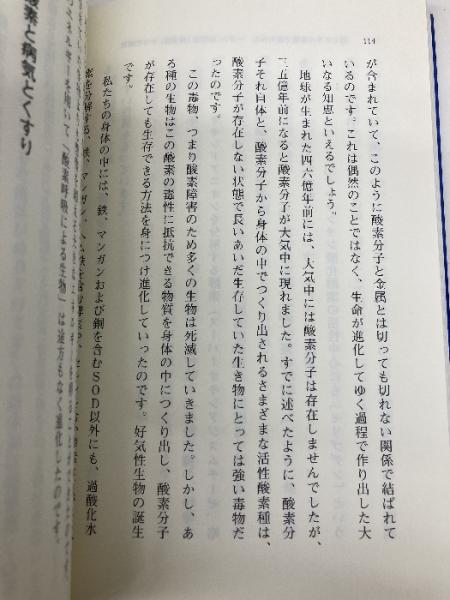 114
が含まれていて、このように酸素分子と金属とは切っても切れない関係で結ばれて
いるのです。これは偶然のことではなく、生命が進化してゆく過程で作り出した大
いなる知恵といえるでしょう。
地球が生まれた四六億年前には、大気中には酸素分子は存在しませんでしたが、
三五億年前になると酸素分子が大気中に現れました。すでに述べたように、酸素分
子それ自体と、酸素分子から身体の中でつくり出されるさまざまな活性酸素種は、
酸素分子が存在しない状態で長いあいだ生存していた生き物にとっては強い毒物だ
ったのです。
この毒物、つまり酸素障害のため多くの生物は死滅していきました。しかし、あ
る種の生物はこの酸素の毒性に抵抗できる物質を身体の中につくり出し、酸素分子
が存在しても生存できる方法を身につけ進化していったのです。好気性生物の誕生
です。
私たちの身体の中には、鉄、マンガンおよび銅を含むSOD以外にも、過酸化水
素を分解する、鉄、マンガン、
「酸素呼吸による生物」は途方もなく進化したのです。
酸素と病気とくすり